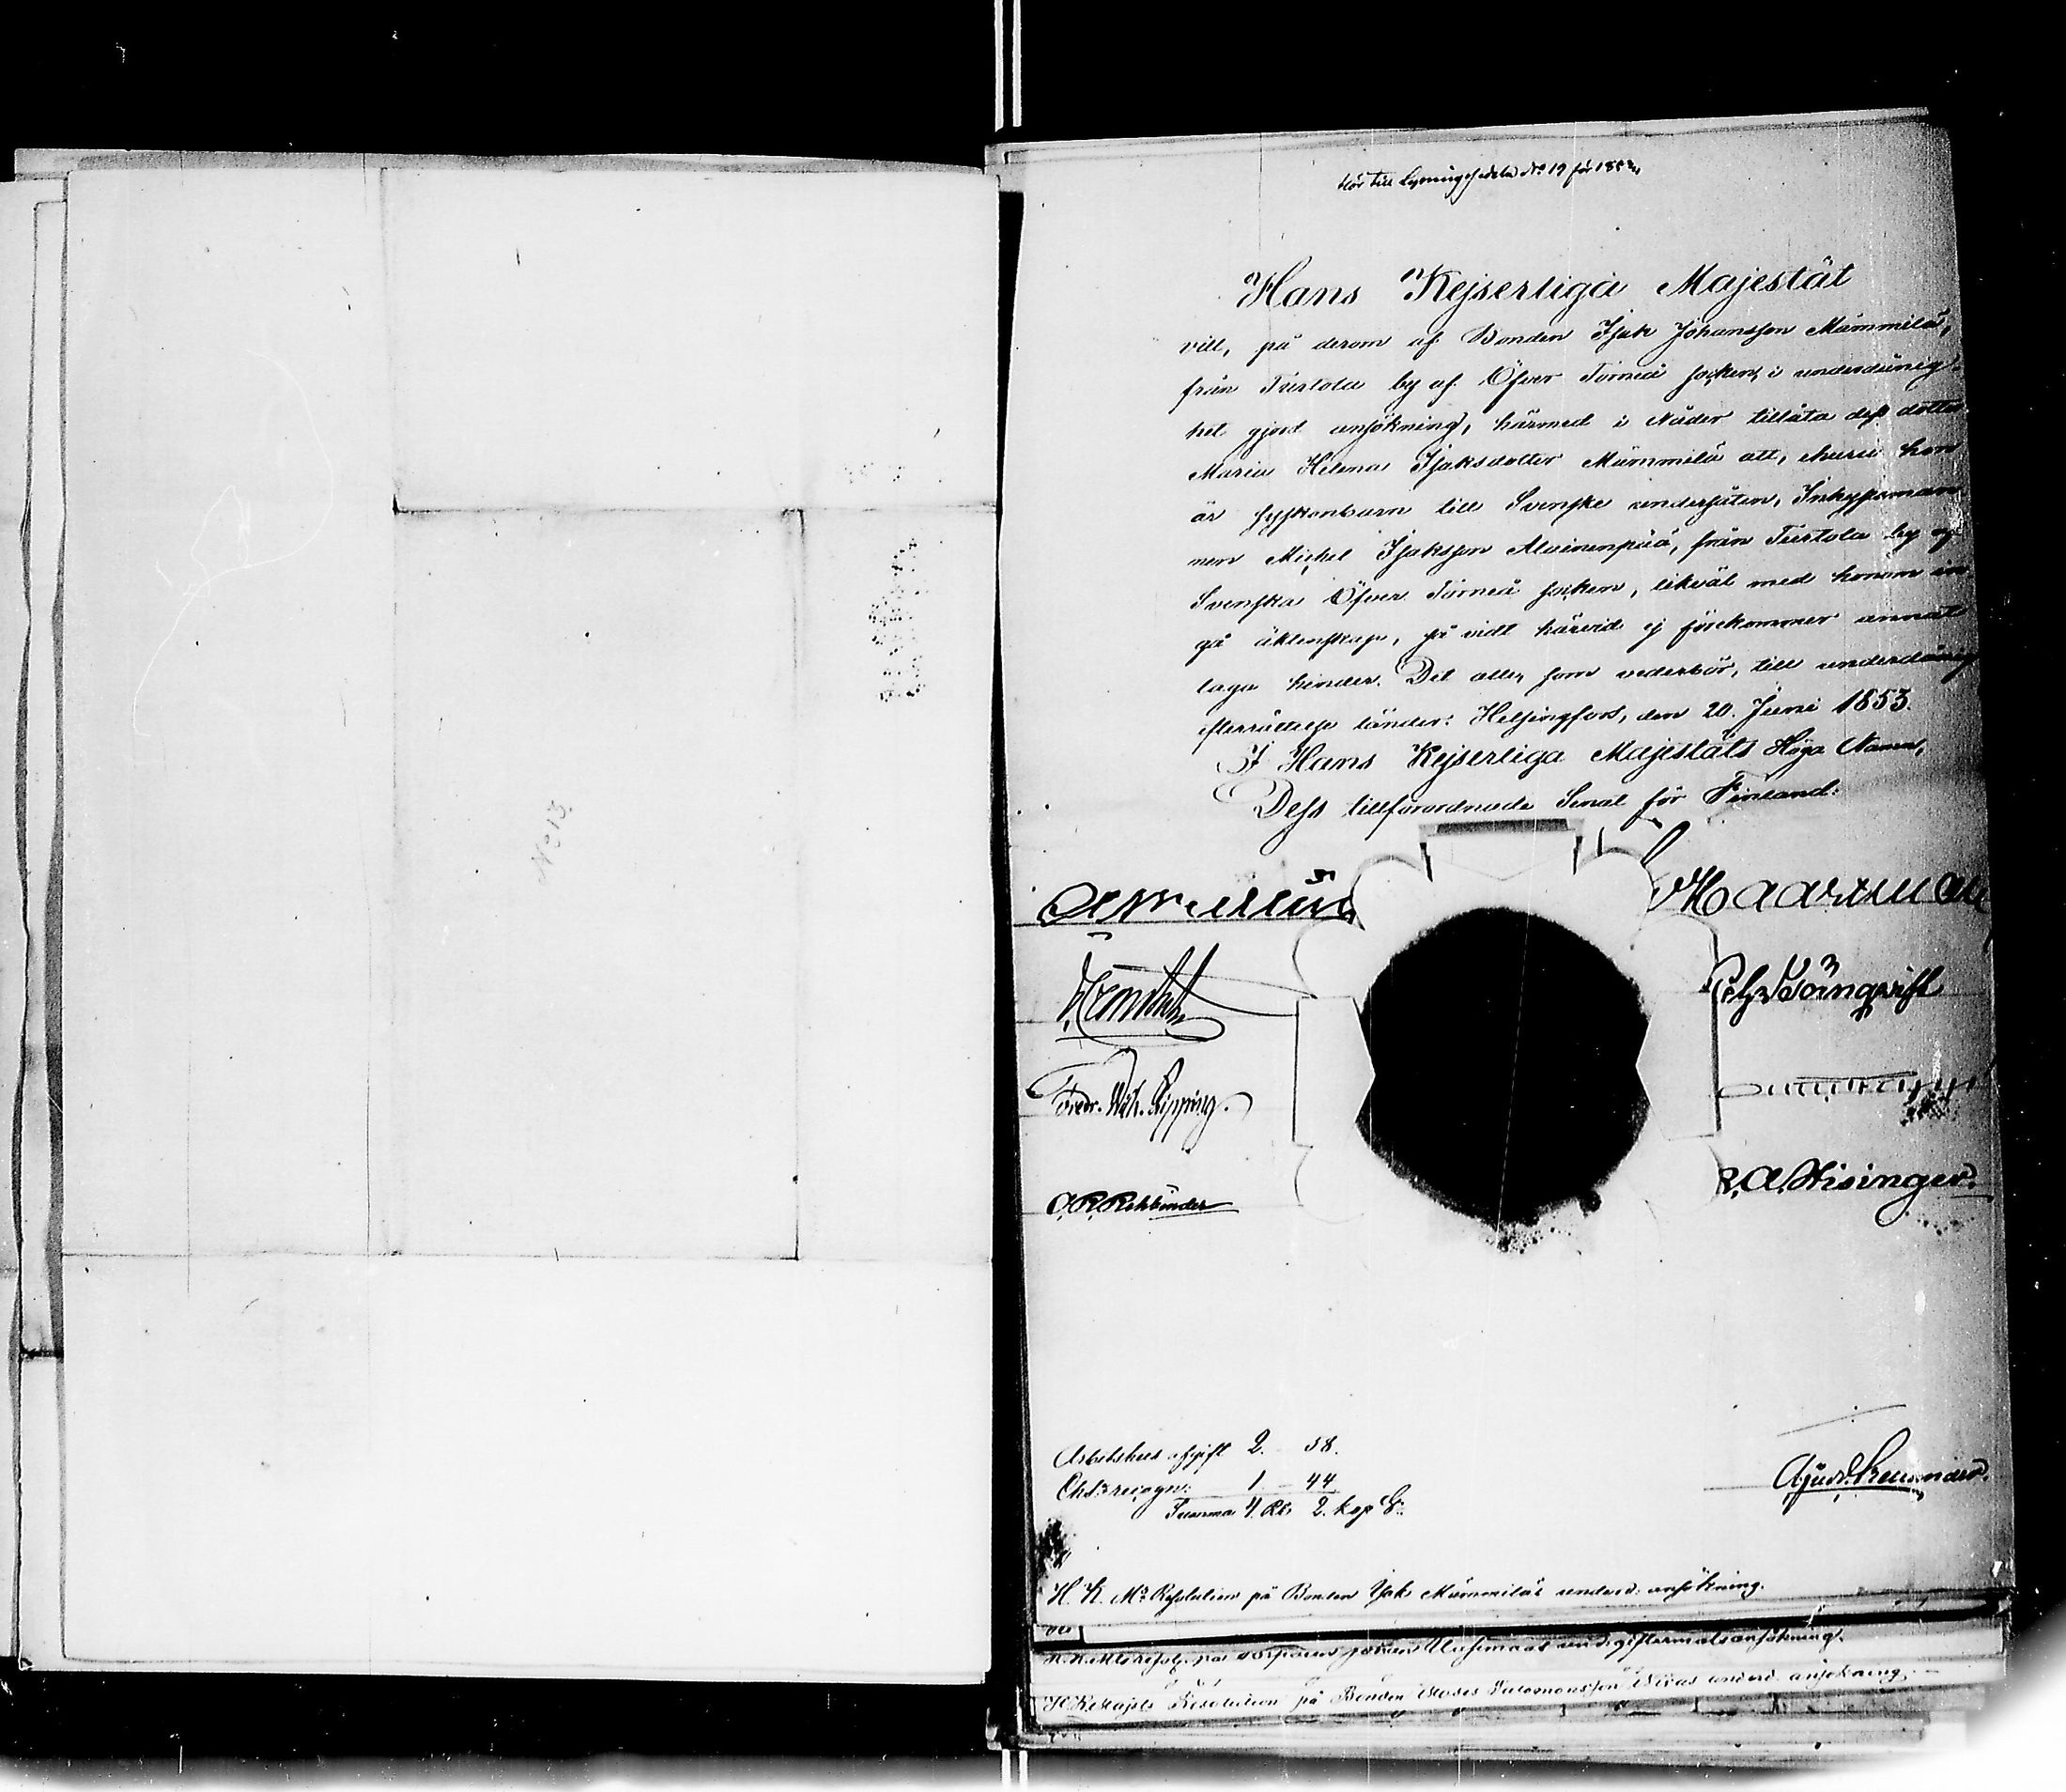 No 13.
Hör till Lysningssedeln No 19 för 1853.
Hans Kejserliga Majestät
vill, på derom af Bonden Isak Johansson Mämmilä,
från Turtola by af Öfver Torneå socken, i underdånig-
het gjord ansökning, härmed i Nåder tillåta dess dotter
Maria Helena Isaksdotter Mämmilä att, ehuru hon
är syskonbarn till Svenske undersåten, Inhysesman-
nen Michel Isaksson Alainenpää, från Turtola by af
Svenska Öfver Torneå socken, likväl med honom in
gå äktenskap, så vidt härvid ej förekommer annat
laga hinder. Det alle, som vederbör, till underdånig
efterrättelse länder. Helsingfors, den 20. Juni 1853.
I Hans Kejserliga Majestäts Höga Namn,
Dess tillförordnade Senat för Finland:
Haartman
Törnqvist
Fredr. Wilh. Pipping.
R. A. Hisinger.
O. R. Rehbinder
Arbetshus afgift 2. 58.
Chartæ recogn: 1 – 44
Summa 4 Rb 2. kop Sr.
H. K. Ms Resolution på Bonden Isak Mämmiläs underd: ansökning.
H. K. Majts Resolution på Bonden Moses Salomonsson underd. ansökning.